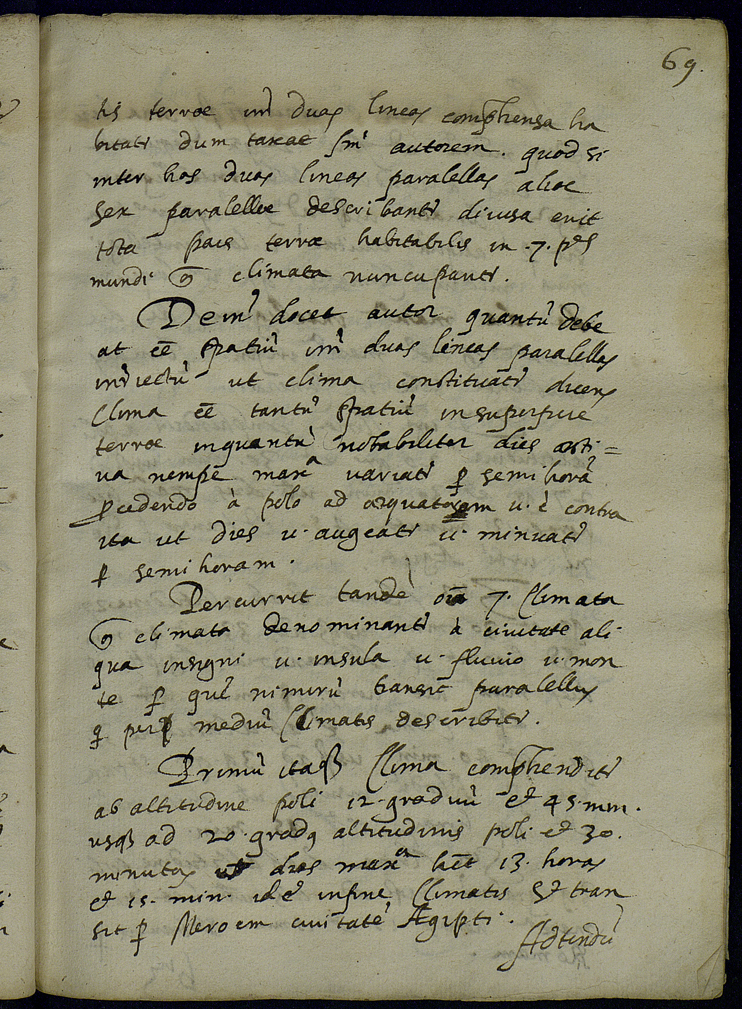 69.
tis terrae int̃ duas lineas comp̃hensa ha
bitatr̃ dum taxat sm̃ autorem. quod si
inter has duas lineas paralellas aliae
sex paralellae describantr̃ diuisa erit
tota pars terrae habitabilis in .7. p̃tes
mundi q̃ climata nuncupantr̃.
Dein⁹ docet autor quantũ debe
at eẽ spatiũ int̃ duas lineas paralellas
int̃iectũ ut clima constituatr̃ dicens
Clima eẽ tantũ spatiũ in superficie
terrae inquantũ notabiliter dies aesti=
ua nempe maxᵃ variatr̃ ꝑ semihorã
ꝓcedendo à polo ad aequatorem u. è contra
ita ut dies u. augeatr̃ u. minuatr̃
ꝑ semihoram.
Percurrit tandẽ oĩa 7. Climata
q̃ climata denominantr̃ à ciuitate ali
qua insigni u. insula u. fluuio u. mon
te ꝑ quẽ nimirũ transit paralellus
q̃ ꝑ mediũ Climatis describitr̃.
Primũ itaqȝ Clima comp̃henditr̃
ab altitudine poli 12. graduũ et 45. min.
usqȝ ad 20. grad⁹ altitudinis poli et 30.
minutas ut dies maxᵃ hẽt 13. horas
et 15. min. id ẽ in fine Climatis et tran
sit ꝑ Meroem ciuitatẽ Ægipti.
Adtendũ